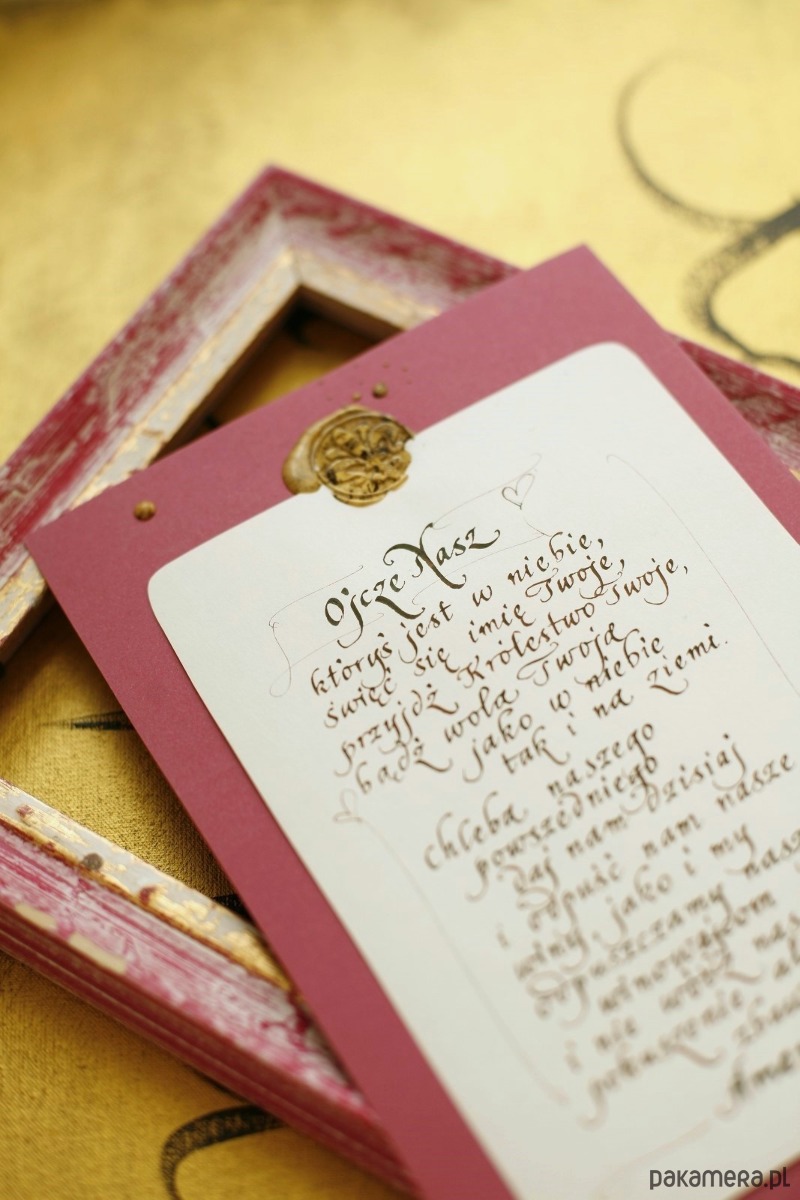 Ojcze Nasz
któryś jest w niebie,
święć się imię Twoje,
przyjdź Królestwo Twoje,
bądź wola Twoja
jako w niebie
tak i na ziemi.
chleba naszego
powszedniego
daj nam dzisiaj
i odpuść nam nasze
winy, jako i my
odpuszczamy nasz
winowajcom
i nie wódź nas
pokuszenie al
zbaw
Amen
pakamera.pl